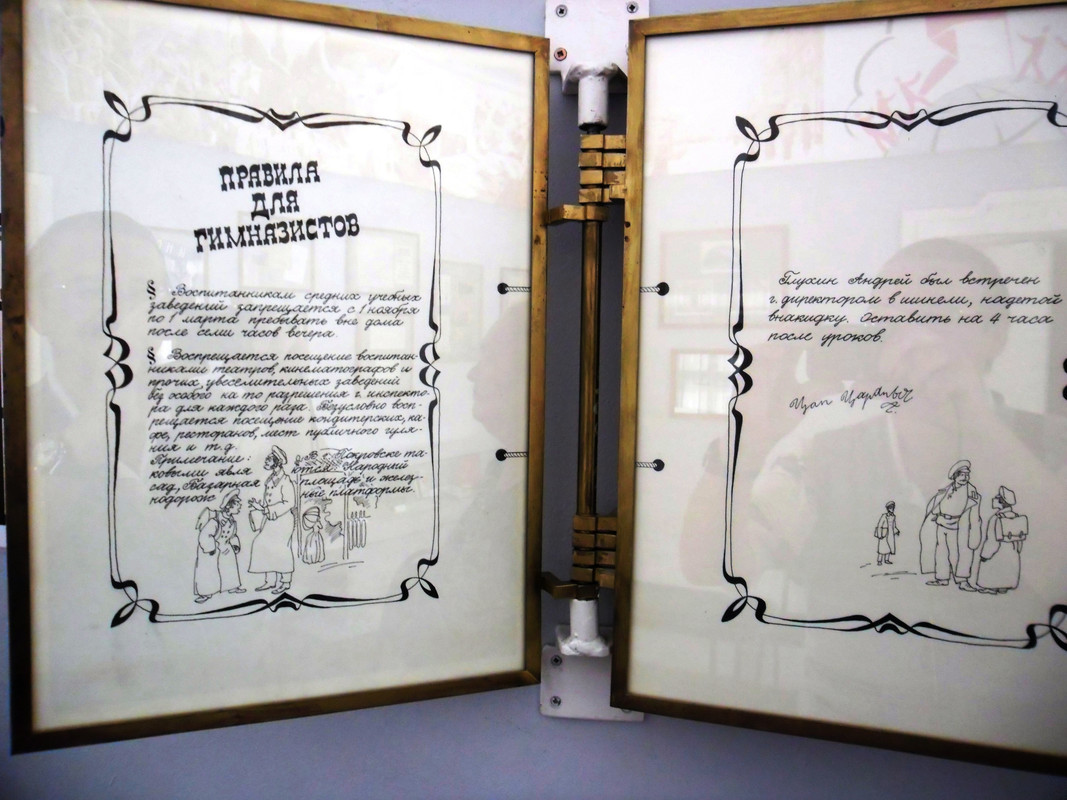 ПРАВИЛА
ДЛЯ
ГИМНАЗИСТОВ
§ Воспитанникам средних учебных
заведений запрещается с 1 ноября
по 1 марта пребывать вне дома
после семи часов вечера.
§ Воспрещается посещение воспитан-
никами театров, кинематографов и
прочих увеселительных заведений
без особого на то разрешения г. инспекто-
ра для каждого раза. Безусловно восп-
рещается посещение кондитерских, ка-
фе, ресторанов, мест публичного гуля-
ния и т.д.
Примечание: В Покровске та-
ковыми явля ются Народный
сад, Базарная площадь и желез-
нодорож ные платформы.
Глухин Андрей был встречен
г. директором в шинели, надетой
внакидку. Оставить на 4 часа
после уроков.
Цап Царапыч